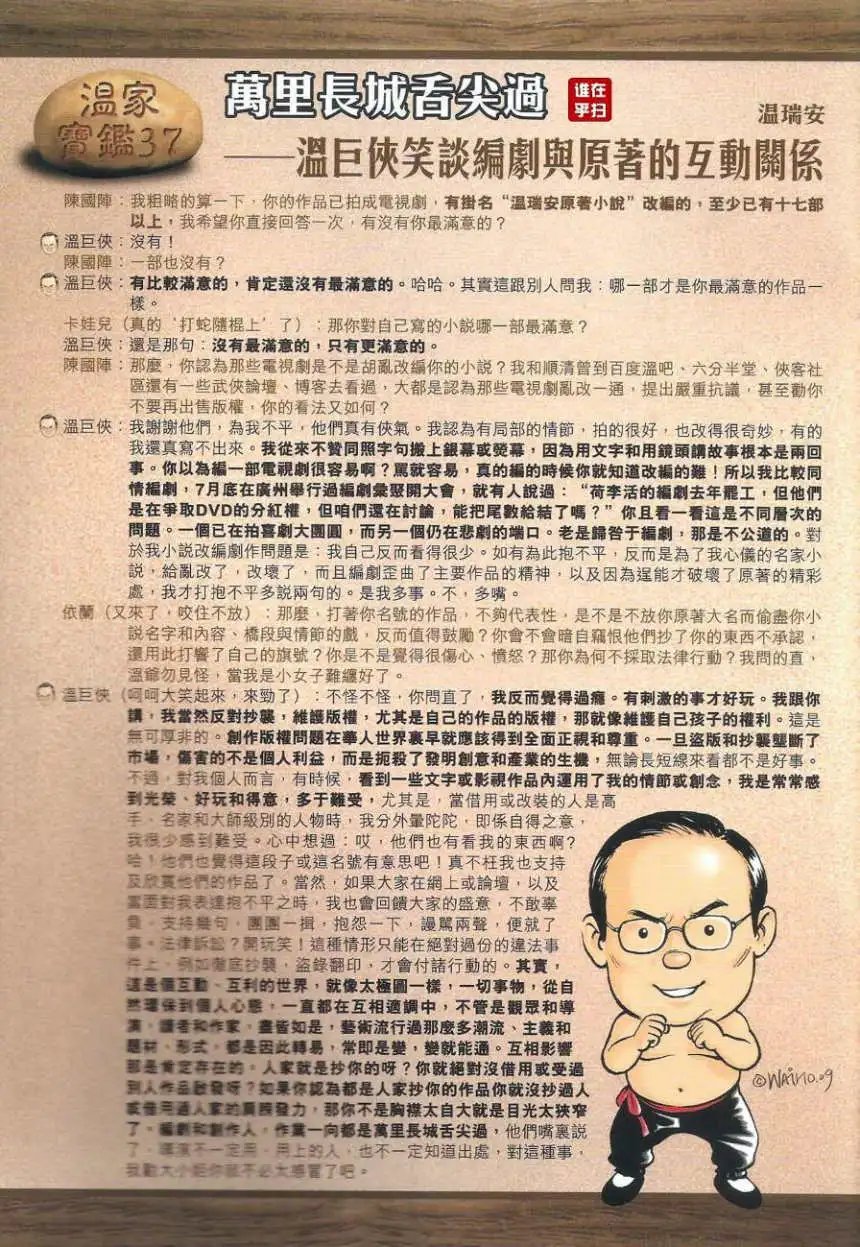 溫家
寶鑑37
萬里長城舌尖過
誰在
乎扫
溫瑞安
——溫巨俠笑談編劇與原著的互動關係
陳國陣：我粗略的算一下，你的作品已拍成電視劇，有掛名“溫瑞安原著小說”改編的，至少已有十七部
以上，我希望你直接回答一次，有沒有你最滿意的？
溫巨俠：沒有！
陳國陣：一部也沒有？
溫巨俠：有比較滿意的，肯定還沒有最滿意的。哈哈。其實這跟別人問我：哪一部才是你最滿意的作品一
樣。
卡娃兒（真的‘打蛇隨棍上’了）：那你對自己寫的小說哪一部最滿意？
溫巨俠：還是那句：沒有最滿意的，只有更滿意的。
陳國陣：那麼，你認為那些電視劇是不是胡亂改編你的小說？我和順清曾到百度溫吧、六分半堂、俠客社
區還有一些武俠論壇、博客去看過，大都是認為那些電視劇亂改一通，提出嚴重抗議，甚至勸你
不要再出售版權，你的看法又如何？
溫巨俠：我謝謝他們，為我不平，他們真有俠氣。我認為有局部的情節，拍的很好，也改得很奇妙，有的
我還真寫不出來。我從來不贊同照字句搬上銀幕或熒幕，因為用文字和用鏡頭講故事根本是兩回
事。你以為編一部電視劇很容易啊？罵就容易，真的編的時候你就知道改編的難！所以我比較同
情編劇，7月底在廣州舉行過編劇彙聚開大會，就有人說過：“荷李活的編劇去年罷工，但他們
是在爭取DVD的分紅權，但咱們還在討論，能把尾數給結了嗎？”你且看一看這是不同層次的
問題。一個已在拍喜劇大團圓，而另一個仍在悲劇的端口。老是歸咎于編劇，那是不公道的。對
於我小說改編劇作問題是：我自己反而看得很少。如有為此抱不平，反而是為了我心儀的名家小
說，給亂改了，改壞了，而且編劇歪曲了主要作品的精神，以及因為逞能才破壞了原著的精彩
處，我才打抱不平多説兩句的。是我多事。不，多嘴。
依蘭（又來了，咬住不放）：那麼，打著你名號的作品，不夠代表性，是不是不放你原著大名而偷盡你小
說名字和內容、橋段與情節的戲，反而值得鼓勵？你會不會暗自竊恨他們抄了你的東西不承認，
還用此打響了自己的旗號？你是不是覺得很傷心、憤怒？那你為何不採取法律行動？我問的直，
溫爺勿見怪，當我是小女子難纏好了。
溫巨俠（呵呵大笑起來，來勁了）：不怪不怪，你問直了，我反而覺得過癮。有刺激的事才好玩。我跟你
講，我當然反對抄襲，維護版權，尤其是自己的作品的版權，那就像維護自己孩子的權利。這是
無可厚非的。創作版權問題在華人世界裏早就應該得到全面正視和尊重。一旦盜版和抄襲壟斷了
市場，傷害的不是個人利益，而是扼殺了發明創意和產業的生機，無論長短線來看都不是好事。
不過，對我個人而言，有時候，看到一些文字或影視作品內運用了我的情節或創念，我是常常感
到光榮、好玩和得意，多于難受，尤其是，當借用或改裝的人是高
手、名家和大師級別的人物時，我分外暈陀陀，即係自得之意，
我很少感到難受。心中想過：哎，他們也有看我的東西啊？
哈！他們也覺得這段子或這名號有意思吧！真不枉我也支持
及欣賞他們的作品了。當然，如果大家在網上或論壇，以及
當面對我表達抱不平之時，我也會回饋大家的盛意，不敢辜
負，支持幾句，團團一揖，抱怨一下，謾罵兩聲，便就了
事。法律訴訟？開玩笑！這種情形只能在絕對過份的違法事
件上，例如徹底抄襲，盜錄翻印，才會付諸行動的。其實，
這是個互動、互利的世界，就像太極圖一樣，一切事物，從自
然環保到個人心態，一直都在互相適調中，不管是觀眾和導
演，讀者和作家，盡皆如是，藝術流行過那麼多潮流、主義和
題材、形式，都是因此轉易，常即是變，變就能通。互相影響
那是肯定存在的。人家就是抄你的呀？你就絕對沒借用或受過
別人作品啟發呀？如果你認為都是人家抄你的作品你就沒抄過人
或借用過人家的肩膊發力，那你不是胸襟太自大就是目光太狹窄
了。編劇和創作人，作業一向都是萬里長城舌尖過，他們嘴裏說
了，導演不一定用，用上的人，也不一定知道出處，對這種事，
我勸大小姐你就不必太感冒了吧。
©WAiHO.09